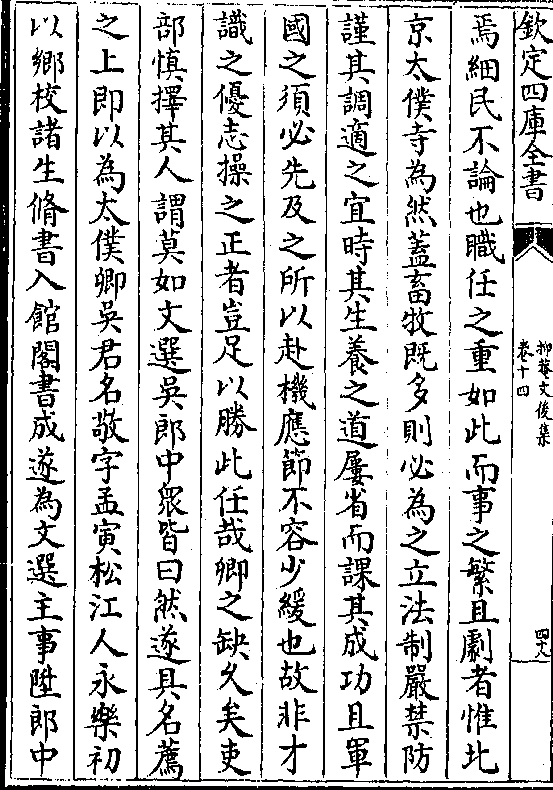 欽定四庫全書
抑菴文後集
卷十四
四九
焉細民不論也職任之重如此而事之繁且劇者惟北
京太僕寺為然蓋畜牧既多則必為之立法制嚴禁防
謹其調適之宜時其生養之道屢省而課其成功且軍
國之須必先及之所以赴機應節不容少緩也故非才
識之優志操之正者豈足以勝此任哉卿之缺久矣吏
部慎擇其人謂莫如文選吳郎中眾皆曰然遂具名薦
之上即以為太僕卿吳君名敬字孟寅松江人永樂初
以鄉校諸生脩書入館閣書成遂為文選主事陞郎中